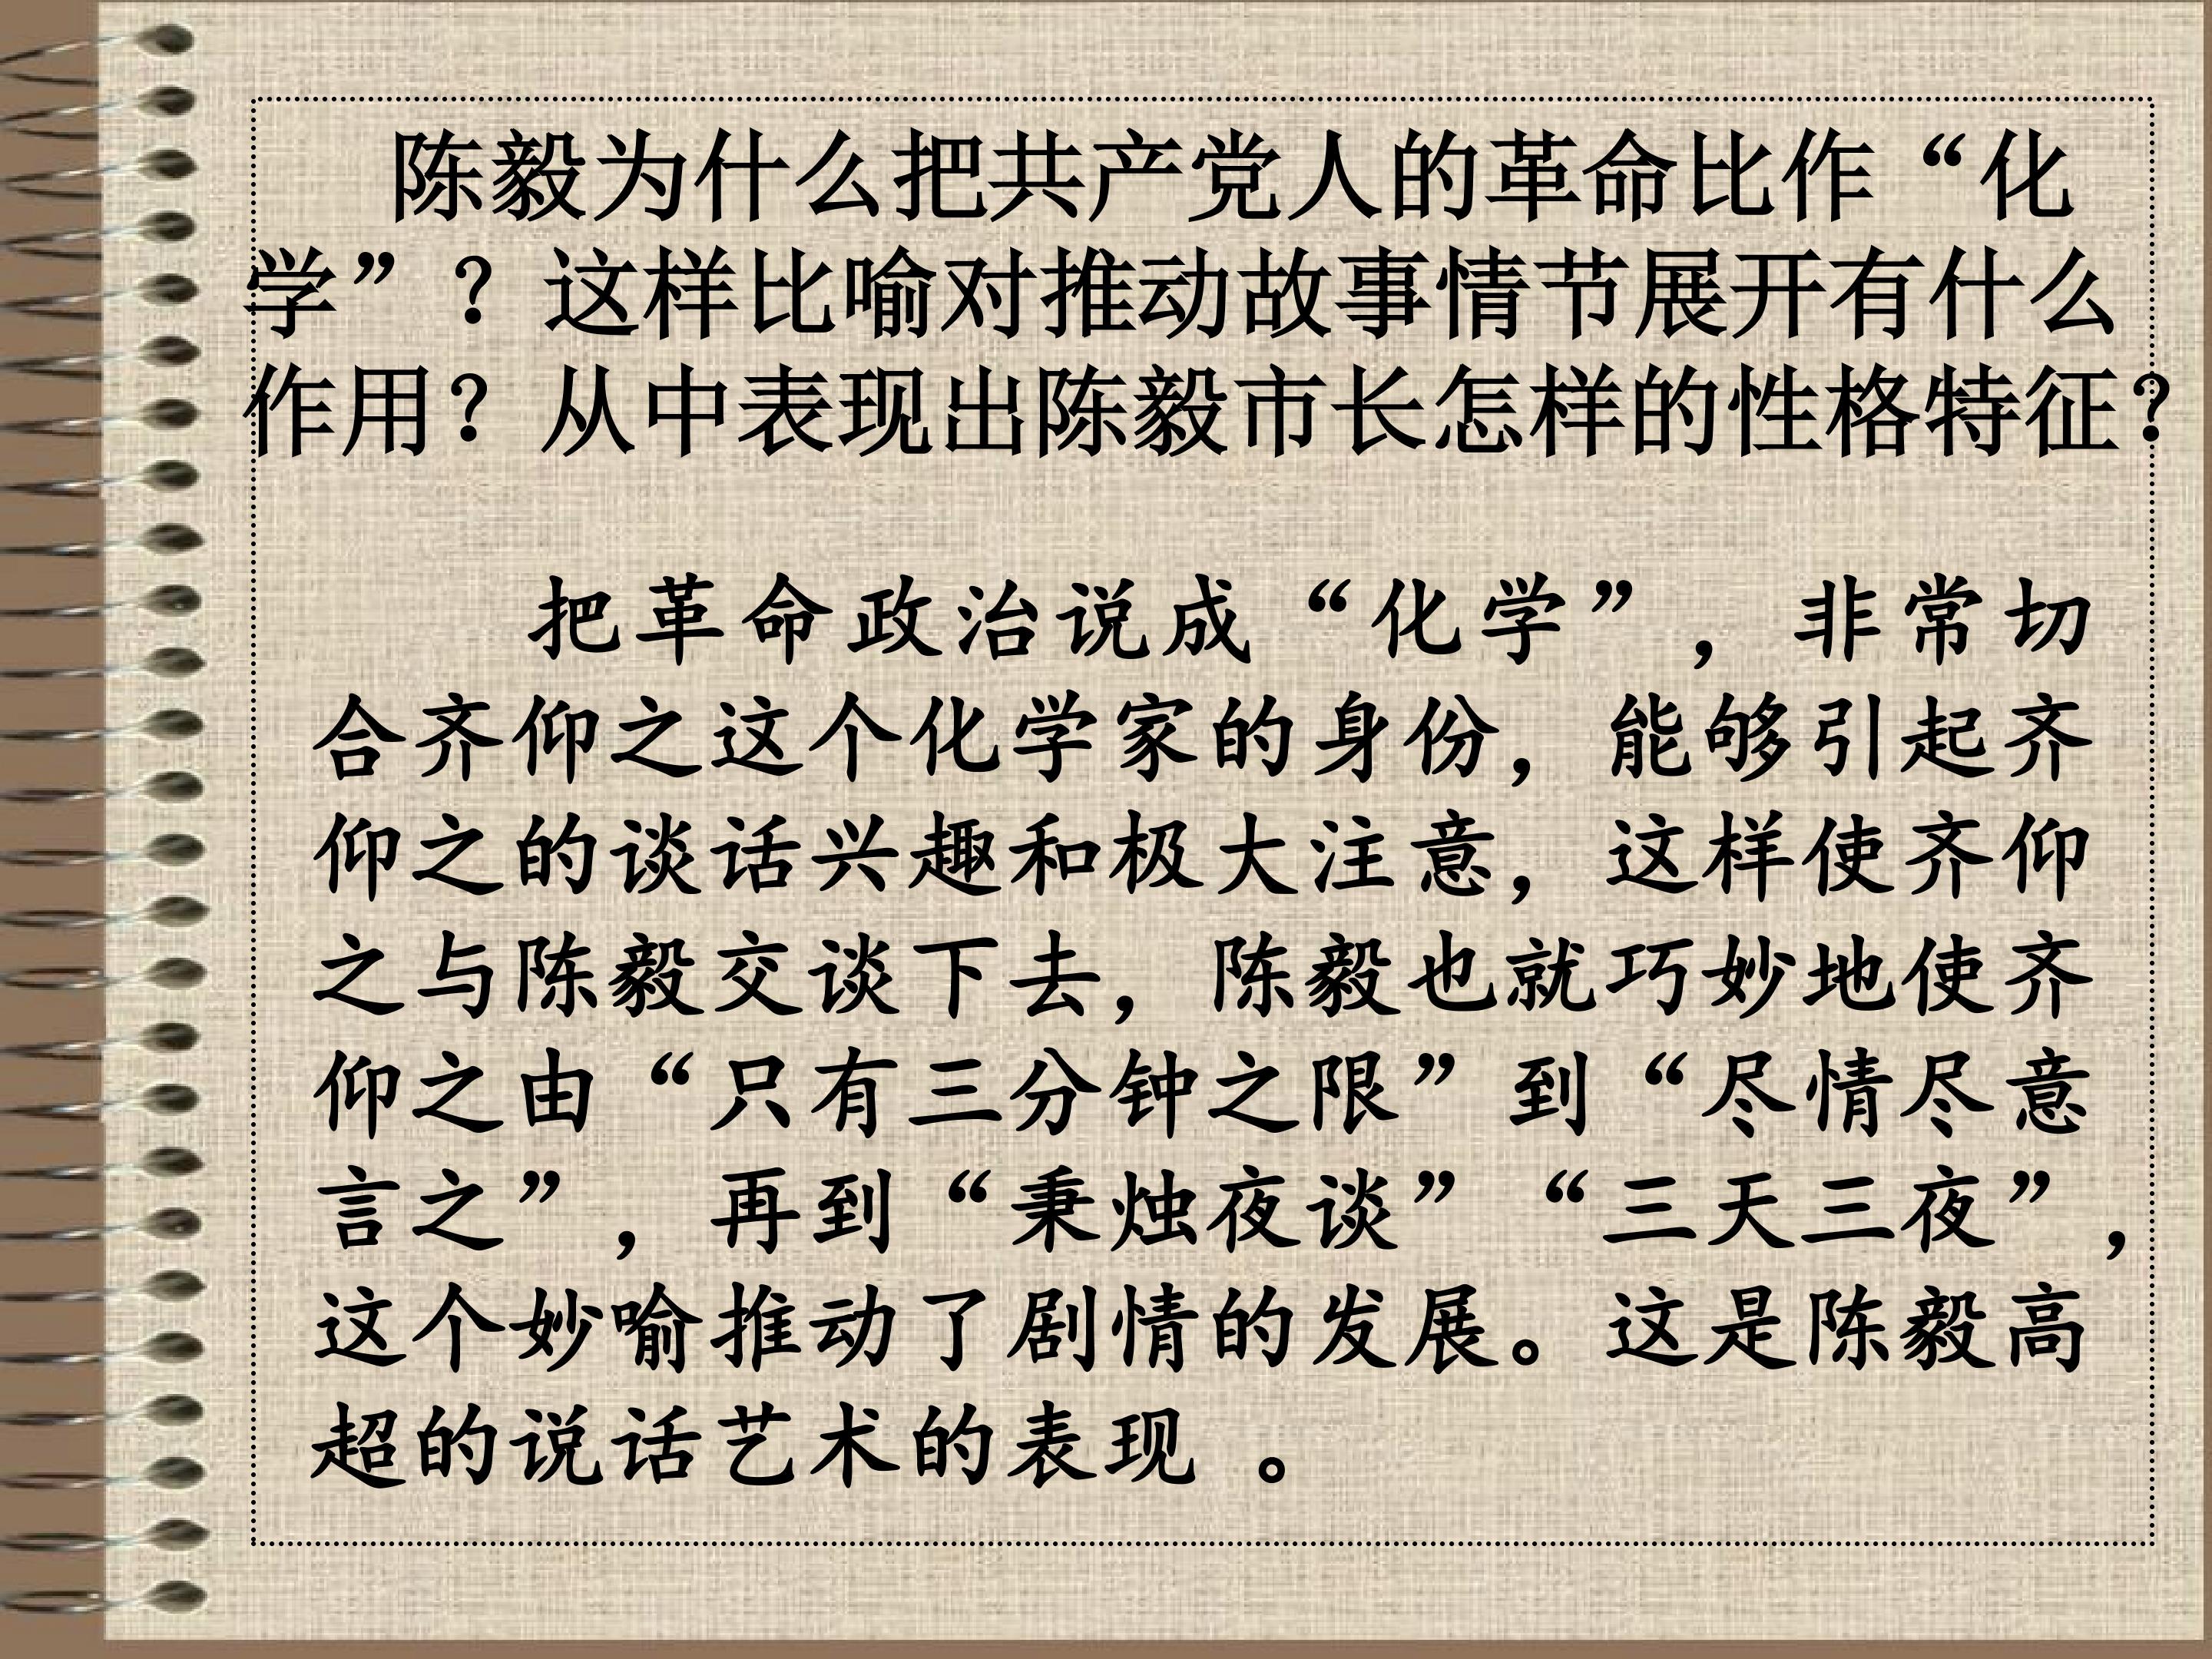 陈毅为什么把共产党人的革命比作“化
学”？这样比喻对推动故事情节展开有什么
作用？从中表现出陈毅市长怎样的性格特征？
把革命政治说成“化学”，非常切
合齐仰之这个化学家的身份，能够引起齐
仰之的谈话兴趣和极大注意，这样使齐仰
之与陈毅交谈下去，陈毅也就巧妙地使齐
仰之由“只有三分钟之限”到“尽情尽意
言之”，再到“秉烛夜谈”“三天三夜”，
这个妙喻推动了剧情的发展。这是陈毅高
超的说话艺术的表现 。